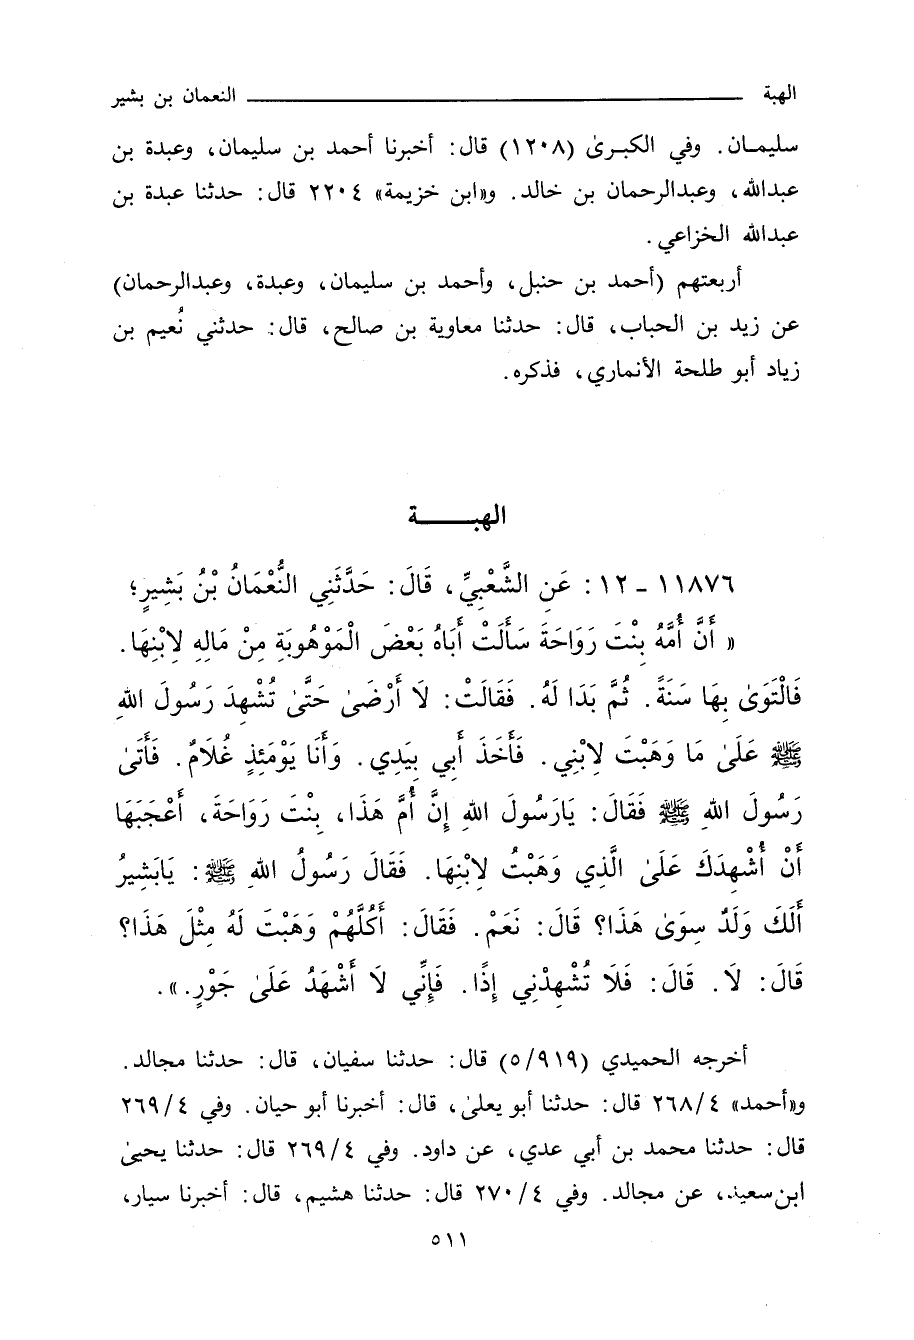 الهبة ــــــــــ النعمان بن بشير
سليمـان. وفي الكبـرىٰ (١٢٠٨) قال: أخبرنا أحمد بن سليمان، وعبدة بن
عبدالله، وعبدالرحمان بن خالد. و«ابن خزيمة» ٢٢٠٤ قال: حدثنا عبدة بن
عبدالله الخزاعي.
أربعتهم (أحمد بن حنبل، وأحمد بن سليمان، وعبدة، وعبدالرحمان)
عن زيد بن الحباب، قال: حدثنا معاوية بن صالح، قال: حدثني نُعيم بن
زياد أبو طلحة الأنماري، فذكره.
الهبـــــة
١١٨٧٦ - ١٢: عَنِ الشَّعْبِيِّ، قَالَ: حَدَّثَنِي النُّعْمَانُ بْنُ بَشِيرٍ؛
« أَنَّ أُمَّهُ بِنْتَ رَوَاحَةَ سَأَلَتْ أَبَاهُ بَعْضَ الْمَوْهُوبَةِ مِنْ مَالِهِ لِابْنِهَا.
فَالْتَوَىٰ بِهَا سَنَةً. ثُمَّ بَدَا لَهُ. فَقَالَتْ: لَا أَرْضَىٰ حَتَّىٰ تُشْهِدَ رَسُولَ اللهِ
ﷺ عَلَىٰ مَا وَهَبْتَ لِابْنِي. فَأَخَذَ أَبِي بِيَدِي. وَأَنَا يَوْمَئِذٍ غُلَامٌ. فَأَتَىٰ
رَسُولَ اللهِ ﷺ فَقَالَ: يَارَسُولَ اللهِ إِنَّ أُمَّ هَذَا، بِنْتَ رَوَاحَةَ، أَعْجَبَهَا
أَنْ أُشْهِدَكَ عَلَىٰ الَّذِي وَهَبْتُ لِابْنِهَا. فَقَالَ رَسُولُ اللهِ ﷺ: يَابَشِيرُ
أَلَكَ وَلَدٌ سِوَىٰ هَذَا؟ قَالَ: نَعَمْ. فَقَالَ: أَكُلَّهُمْ وَهَبْتَ لَهُ مِثْلَ هَذَا؟
قَالَ: لَا. قَالَ: فَلَا تُشْهِدْنِي إِذًا. فَإِنِّي لَا أَشْهَدُ عَلَىٰ جَوْرٍ.».
أخرجه الحميدي (٥/٩١٩) قال: حدثنا سفيان، قال: حدثنا مجالد.
و«أحمد» ٢٦٨/٤ قال: حدثنا أبو يعلىٰ، قال: أخبرنا أبو حيان. وفي ٢٦٩/٤
قال: حدثنا محمد بن أبي عدي، عن داود. وفي ٢٦٩/٤ قال: حدثنا يحيىٰ
ابن سعيد، عن مجالد. وفي ٢٧٠/٤ قال: حدثنا هشيم، قال: أخبرنا سيار،
٥١١